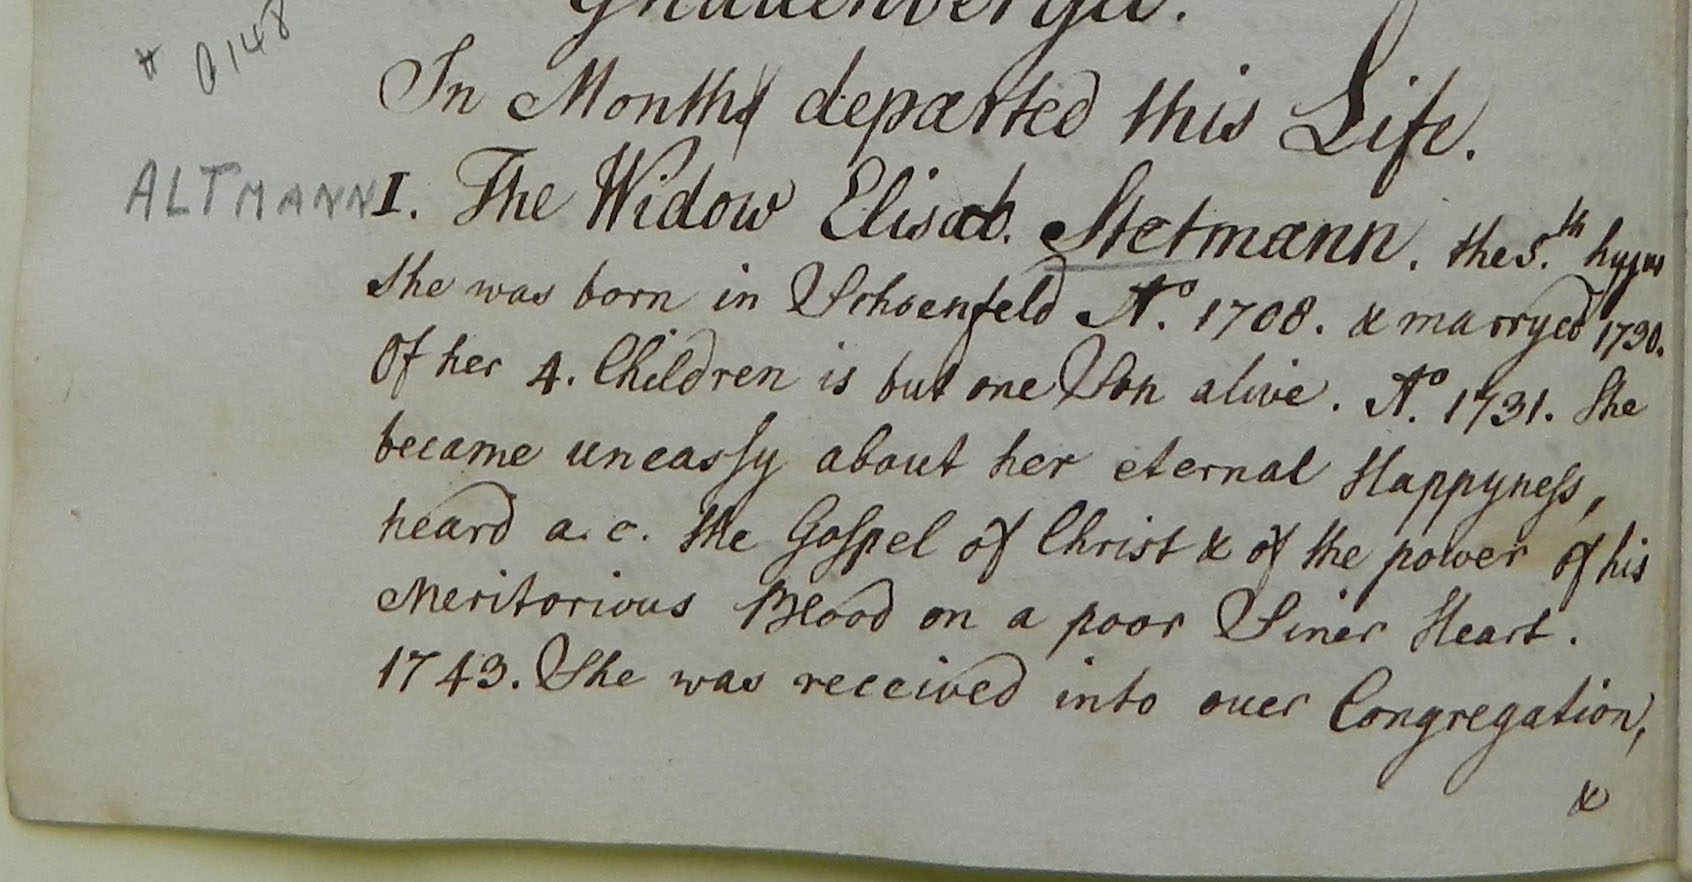 In Month departed this Life.
ALTMANN I. The Widow Elisab. Stetmann. the 5.th hujus
She was born in Schoenfeld Ao. 1708. & marryed 1730.
Of her 4. Children is but one Son alive. Ao. 1731. She
became uneassy about her eternal Happyness,
heard a. c. the Gospel of Christ & of the power of his
Meritorious Blood on a poor Siner Heart.
1743. She was received into ouer Congregation,
&